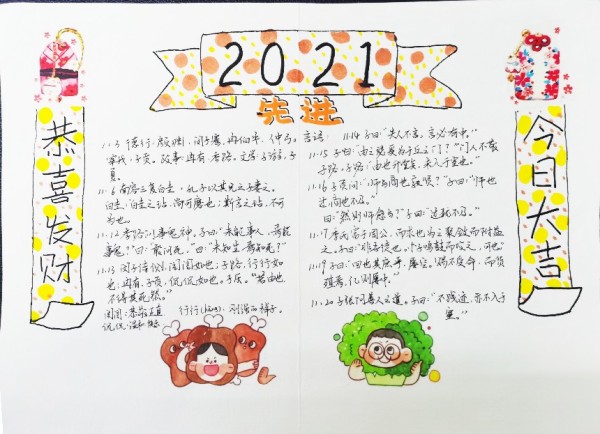 2021
先进
恭喜发财
今日大吉
11.3 德行：颜渊，闵子骞，冉伯牛，仲弓。言语：
宰我，子贡。政事：冉有，季路。文学：子游，子
夏。
11.6 南容三复白圭，孔子以其兄之子妻之。
白圭：白圭之玷，尚可磨也；斯言之玷，不可
为也。
11.12 季路问事鬼神。子曰："未能事人，焉能
事鬼？"曰："敢问死。"曰："未知生，焉知死？"
11.13 闵子侍侧，訚訚如也；子路，行行如
也；冉有、子贡，侃侃如也。子乐。"若由也，
不得其死然。"
訚訚：恭敬正直
侃侃：温和快乐
行行(hàng)：刚强的样子。
11.14 子曰："夫人不言，言必有中。"
11.15 子曰："由之瑟奚为于丘之门？"门人不敬
子路。子曰："由也升堂矣，未入于室也。"
11.16 子贡问："师与商也孰贤？"子曰："师也
过，商也不及。"
曰："然则师愈与？"子曰："过犹不及。"
11.17 季氏富于周公，而求也为之聚敛而附益
之。子曰："非吾徒也。小子鸣鼓而攻之，可也。"
11.19 子曰："回也其庶乎，屡空。赐不受命，而货
殖焉，亿则屡中。"
11.20 子张问善人之道。子曰："不践迹，亦不入于
室。"